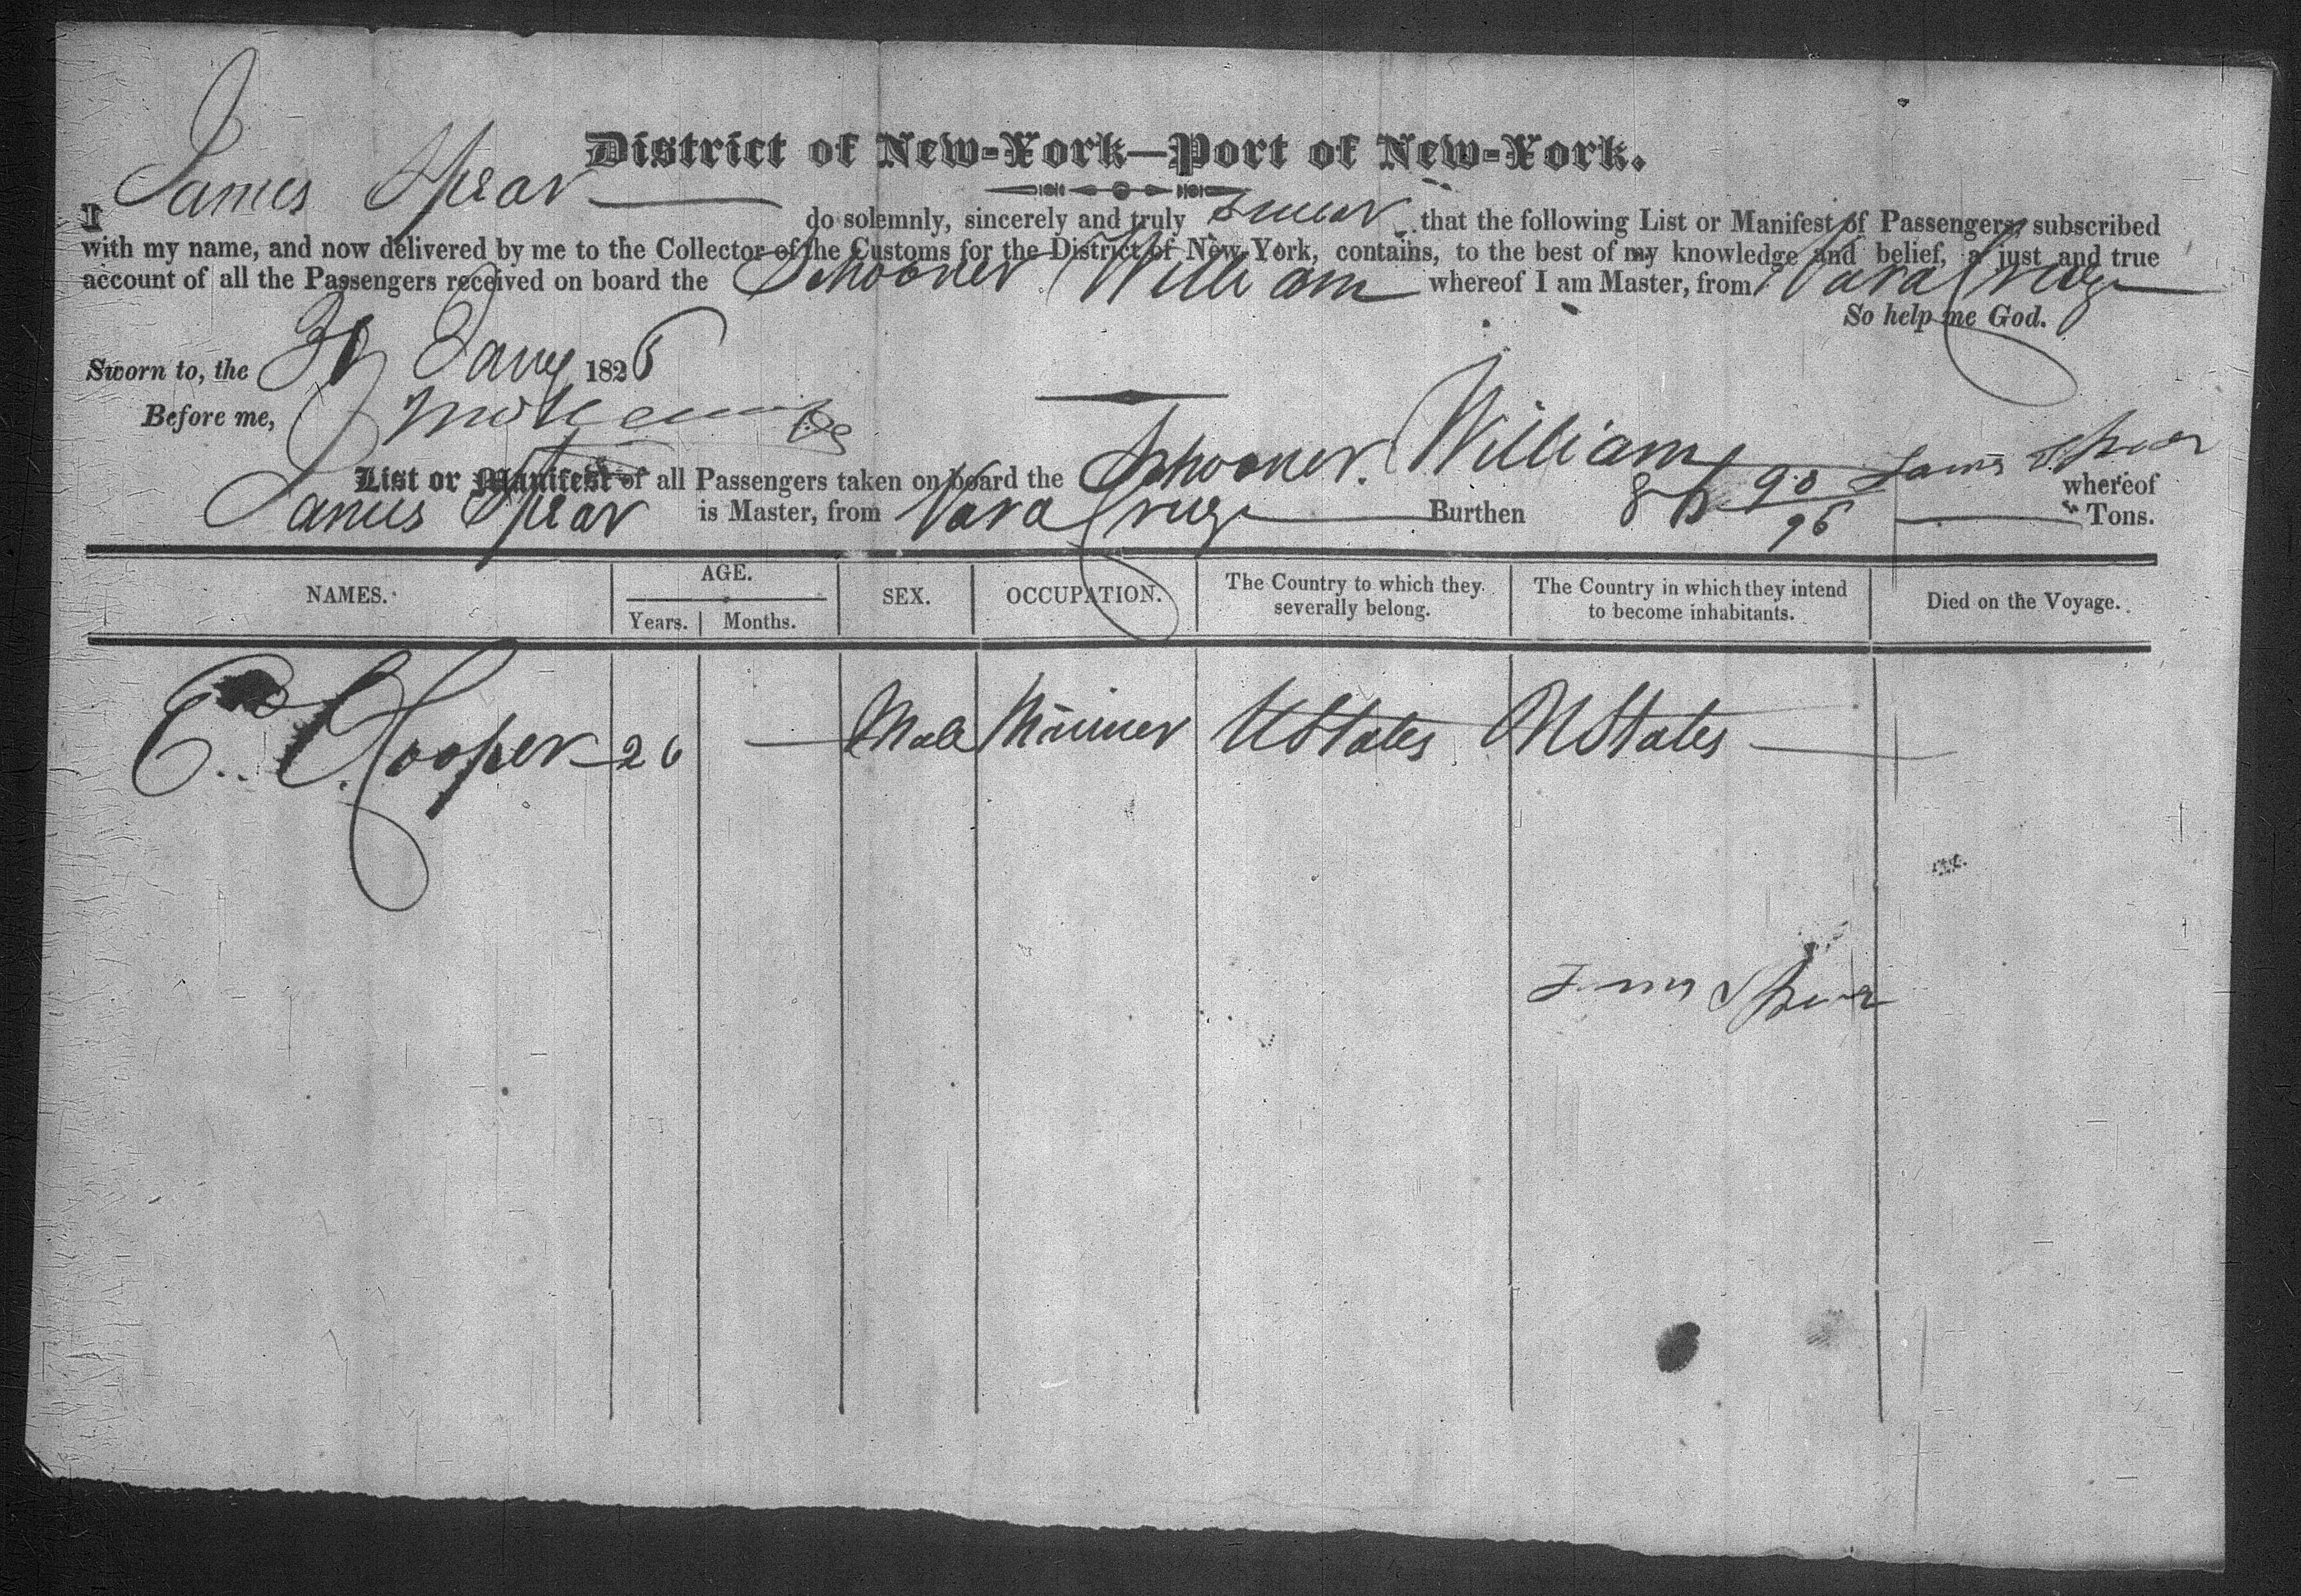 District of New-York—Port of New-York.
I James Spear do solemnly, sincerely and truly swear that the following List or Manifest of Passengers, subscribed
with my name, and now delivered by me to the Collector of the Customs for the District of New-York, contains, to the best of my knowledge and belief, a just and true
account of all the Passengers received on board the Schooner William whereof I am Master, from Vara Cruz
So help me God.
Sworn to, the 31 Jany 1826
Before me,
James Spear
List or Manifest of all Passengers taken on board the Schooner William whereof
James Spear is Master, from Vara Cruz Burthen 90/95 Tons.
NAMES. AGE. Years. Months. SEX. OCCUPATION. The Country to which they severally belong. The Country in which they intend to become inhabitants. Died on the Voyage.
Cooper 26 Male UStates UStates
James Spear